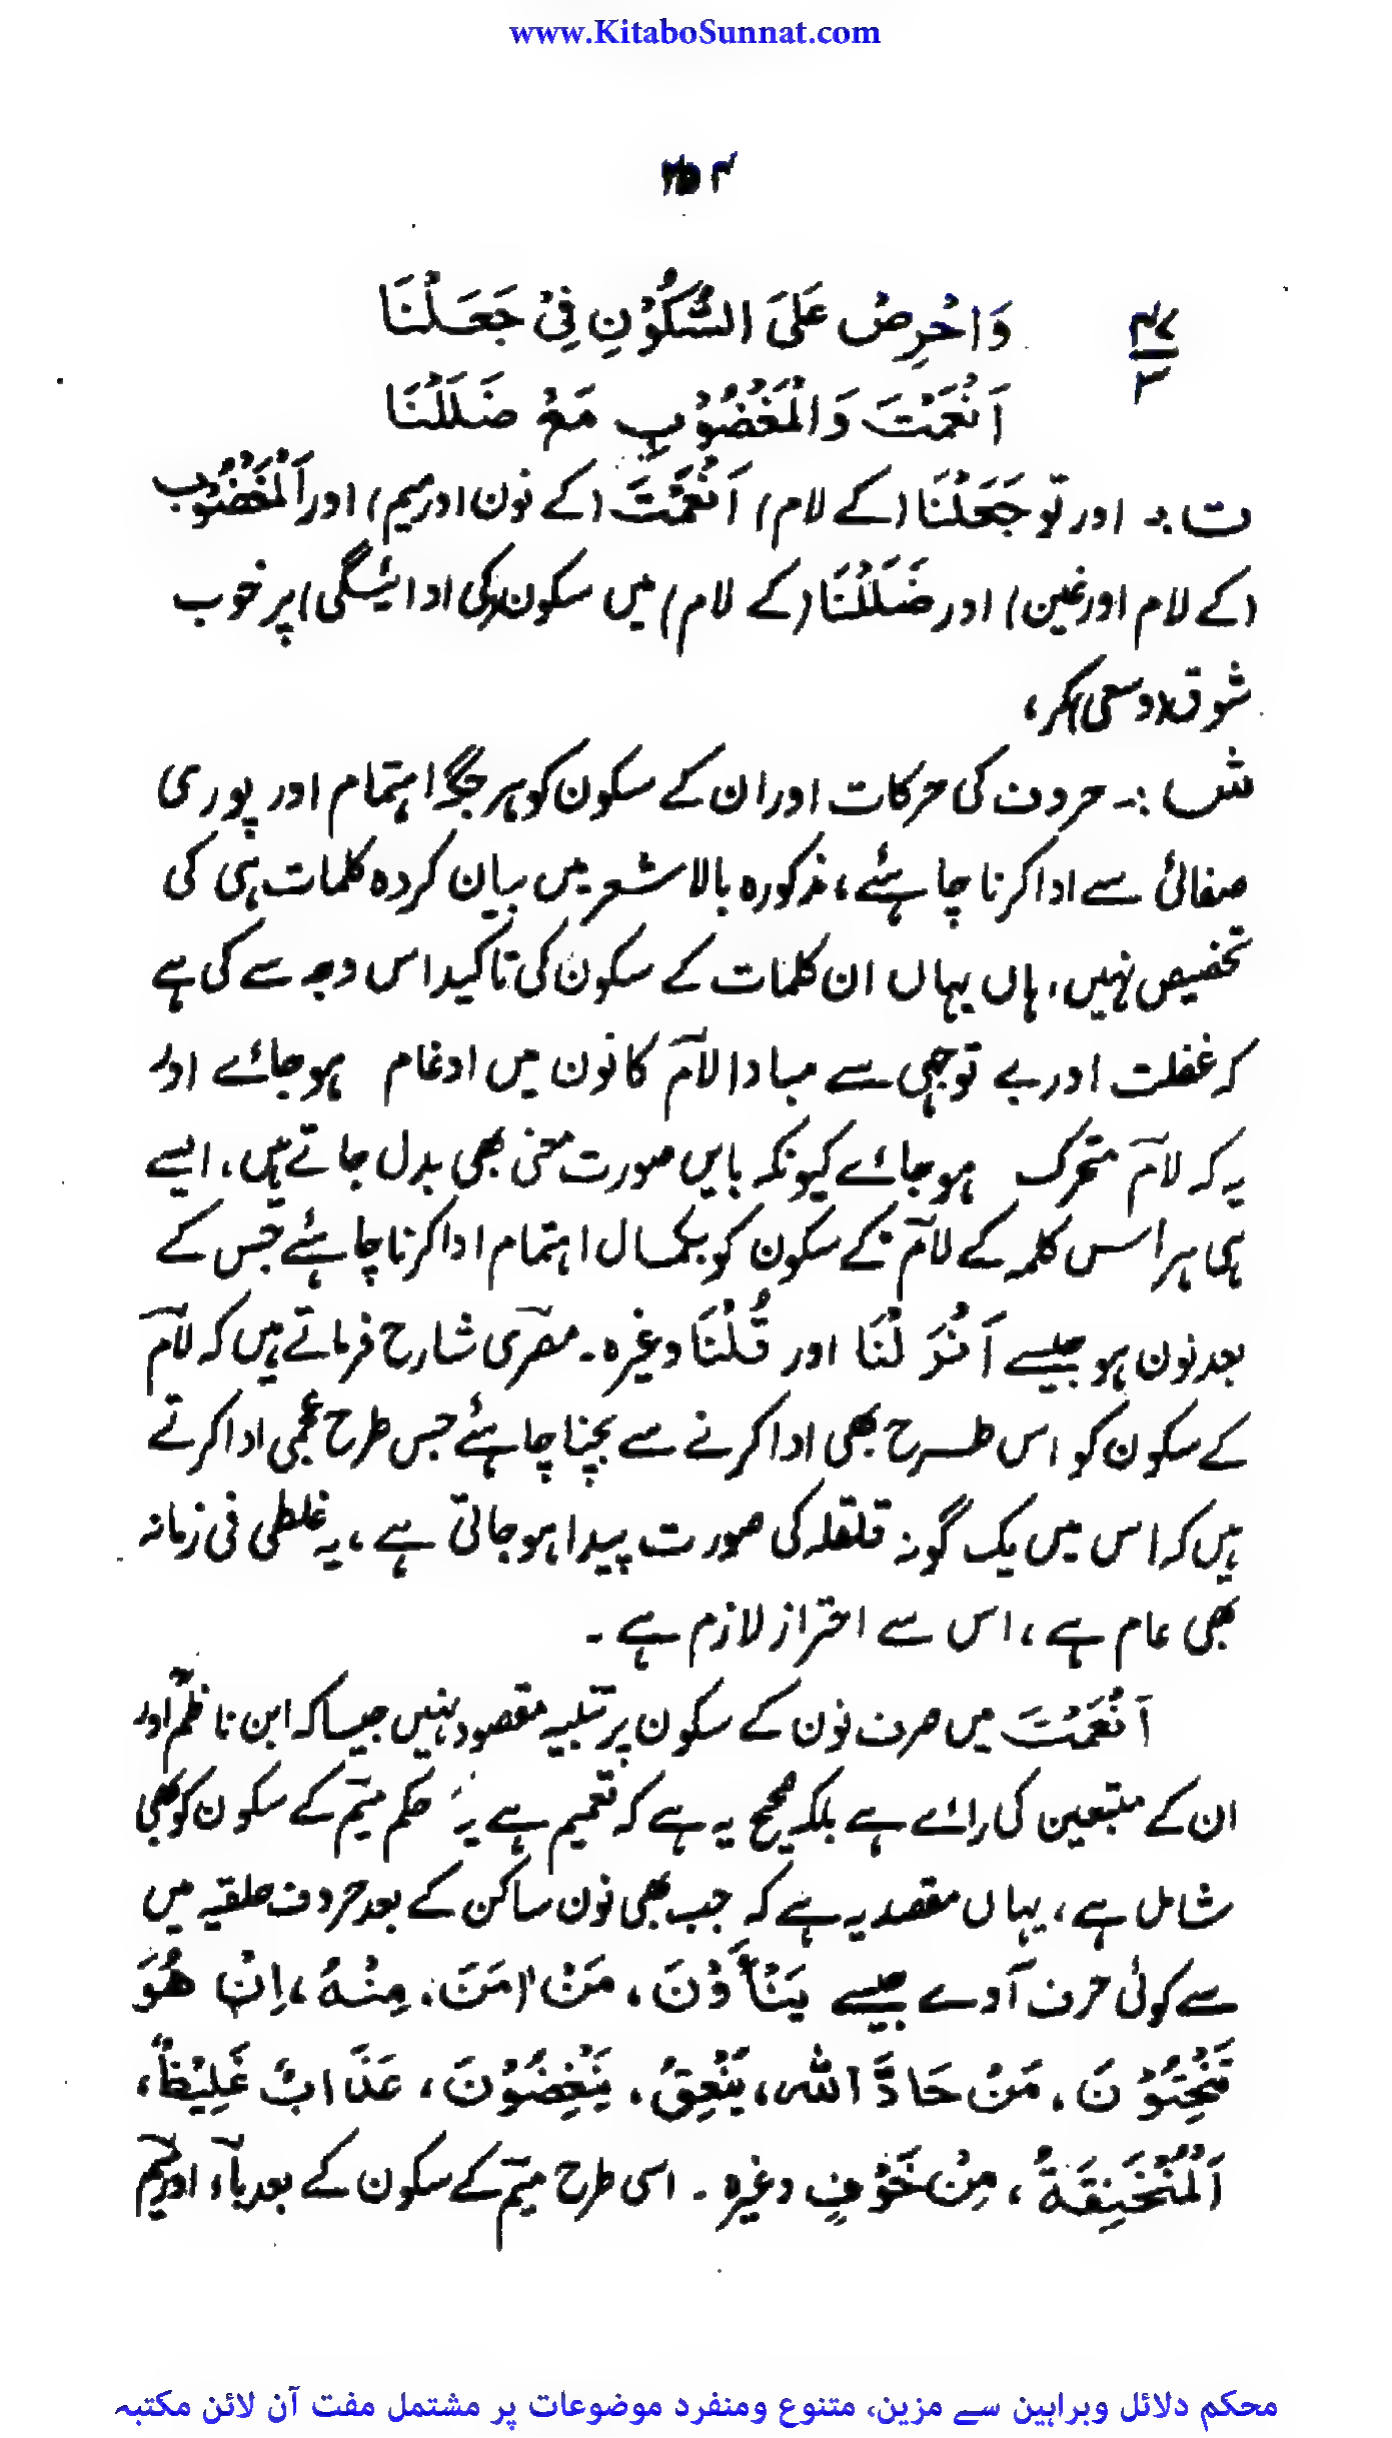 www.KitaboSunnat.com
۴۷
۳
وَاحْرِصْ عَلَى السُّكُوْنِ فِيْ جَعَلْنَا
اَنْعَمْتَ وَالْمَغْضُوْبِ مَعْ ضَلَلْنَا
ت :۔ اور تو جَعَلْنَا (کے لام) اَنْعَمْتَ (کے نون اور میم) اور اَلْمَغْضُوْبِ
(کے لام اور غین) اور ضَلَلْنَا (کے لام) میں سکون (کی ادائیگی) پر خوب
شوق (و سعی) کر،
ش :۔ حروف کی حرکات اور ان کے سکون کو ہر جگہ اہتمام اور پوری
صفائی سے ادا کرنا چاہئے، مذکورہ بالا شعر میں بیان کردہ کلمات ہی کی
تخصیص نہیں، ہاں یہاں ان کلمات کے سکون کی تاکید اس وجہ سے کی ہے
کہ غفلت اور بے توجہی سے مبادا لامؔ کا نون میں ادغام ہو جائے اور
یہ کہ لامؔ متحرک ہو جائے کیونکہ بایں صورت معنی بھی بدل جاتے ہیں، ایسے
ہی ہر اس کلمہ کے لامؔ کے سکون کو بکمال اہتمام ادا کرنا چاہئے جس کے
بعد نون ہو جیسے اَنْزَلْنَا اور قُلْنَا وغیرہ۔ مصری شارح فرماتے ہیں کہ لامؔ
کے سکون کو اس طرح بھی ادا کرنے سے بچنا چاہئے جس طرح عجمی ادا کرتے
ہیں کہ اس میں یک گونہ قلقلہ کی صورت پیدا ہو جاتی ہے، یہ غلطی فی زمانہ
بھی عام ہے، اس سے احتراز لازم ہے ۔
اَنْعَمْتَ میں صرف نون کے سکون پر تنبیہ مقصود نہیں جیسا کہ ابن ناظمؒ اور
ان کے متبعین کی رائے ہے بلکہ صحیح یہ ہے کہ تعمیم ہے یہ حکم میمؔ کے سکون کو بھی
شامل ہے، یہاں مقصد یہ ہے کہ جب بھی نون ساکن کے بعد حروف حلقیہ میں
سے کوئی حرف آوے جیسے يَنْأَوْنَ، مَنْ اٰمَنَ، مِنْهُ، اِنْ هُوَ
تَنْحِتُوْنَ، مَنْ حَادَّ الله، يَنْعِقُ، يَنْغِضُوْنَ، عَذَابٌ غَلِيْظٌ،
اَلْمُنْخَنِقَةُ، مِنْ خَوْفٍ وغیرہ ۔ اسی طرح میمؔ کے سکون کے بعد باؔء اور میمؔ
محکم دلائل وبراہین سے مزین، متنوع ومنفرد موضوعات پر مشتمل مفت آن لائن مکتبہ